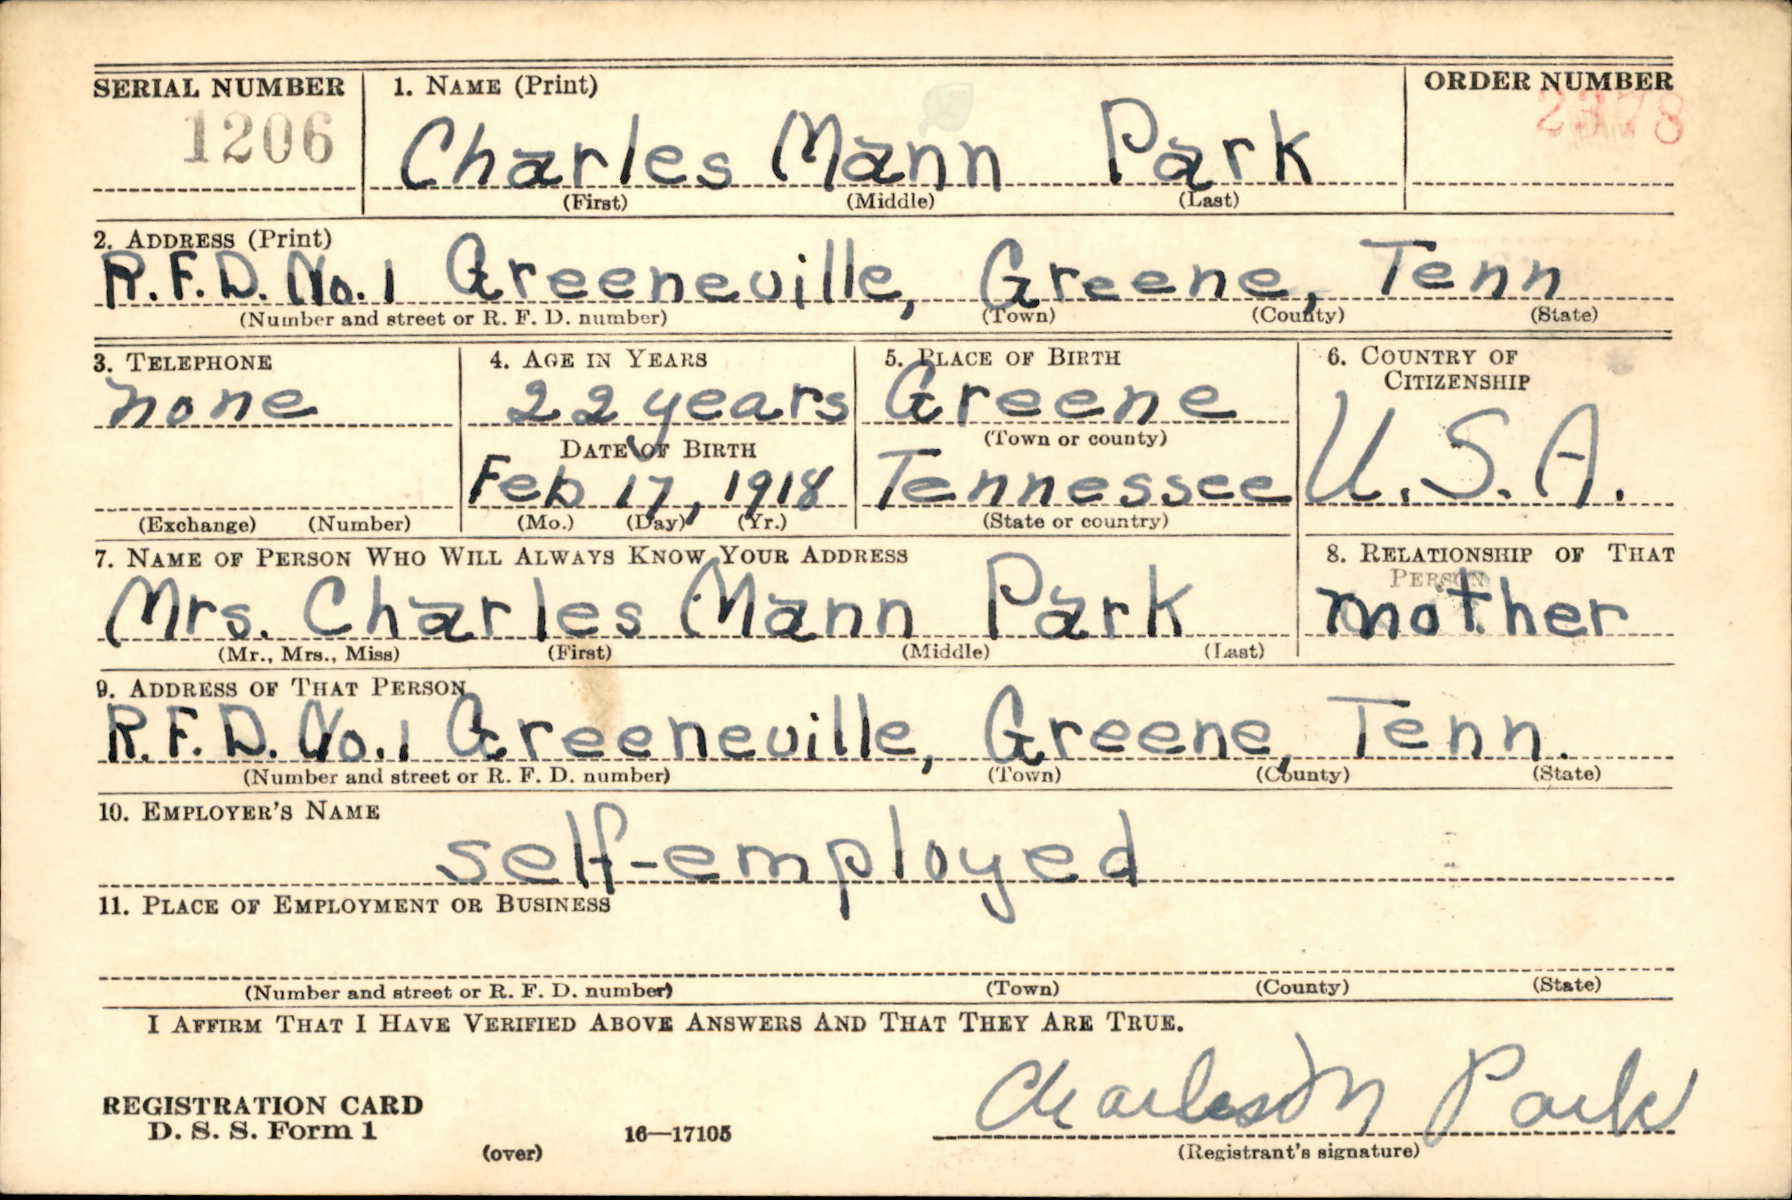 SERIAL NUMBER 1. NAME (Print) ORDER NUMBER
1206 Charles Mann Park 2378
(First) (Middle) (Last)
2. ADDRESS (Print)
R.F.D. No. 1 Greeneville, Greene, Tenn
(Number and street or R. F. D. number) (Town) (County) (State)
3. TELEPHONE 4. AGE IN YEARS 5. PLACE OF BIRTH 6. COUNTRY OF
CITIZENSHIP
none 22 years Greene
DATE OF BIRTH (Town or county)
Feb 17, 1918 Tennessee U.S.A.
(Exchange) (Number) (Mo.) (Day) (Yr.) (State or country)
7. NAME OF PERSON WHO WILL ALWAYS KNOW YOUR ADDRESS 8. RELATIONSHIP OF THAT
PERSON
Mrs. Charles Mann Park mother
(Mr., Mrs., Miss) (First) (Middle) (Last)
9. ADDRESS OF THAT PERSON
R.F.D. No. 1 Greeneville, Greene, Tenn.
(Number and street or R. F. D. number) (Town) (County) (State)
10. EMPLOYER'S NAME
self-employed
11. PLACE OF EMPLOYMENT OR BUSINESS
(Number and street or R. F. D. number) (Town) (County) (State)
I AFFIRM THAT I HAVE VERIFIED ABOVE ANSWERS AND THAT THEY ARE TRUE.
Charles M Park
REGISTRATION CARD
D. S. S. Form 1 16—17105
(over) (Registrant's signature)